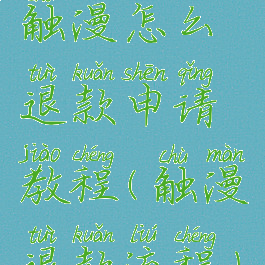 触漫怎么
tuì kuǎn shēn qǐng
退款申请
jiào chéng ( chù màn
教程(触漫
tuì kuǎn liú chéng
退款流程)